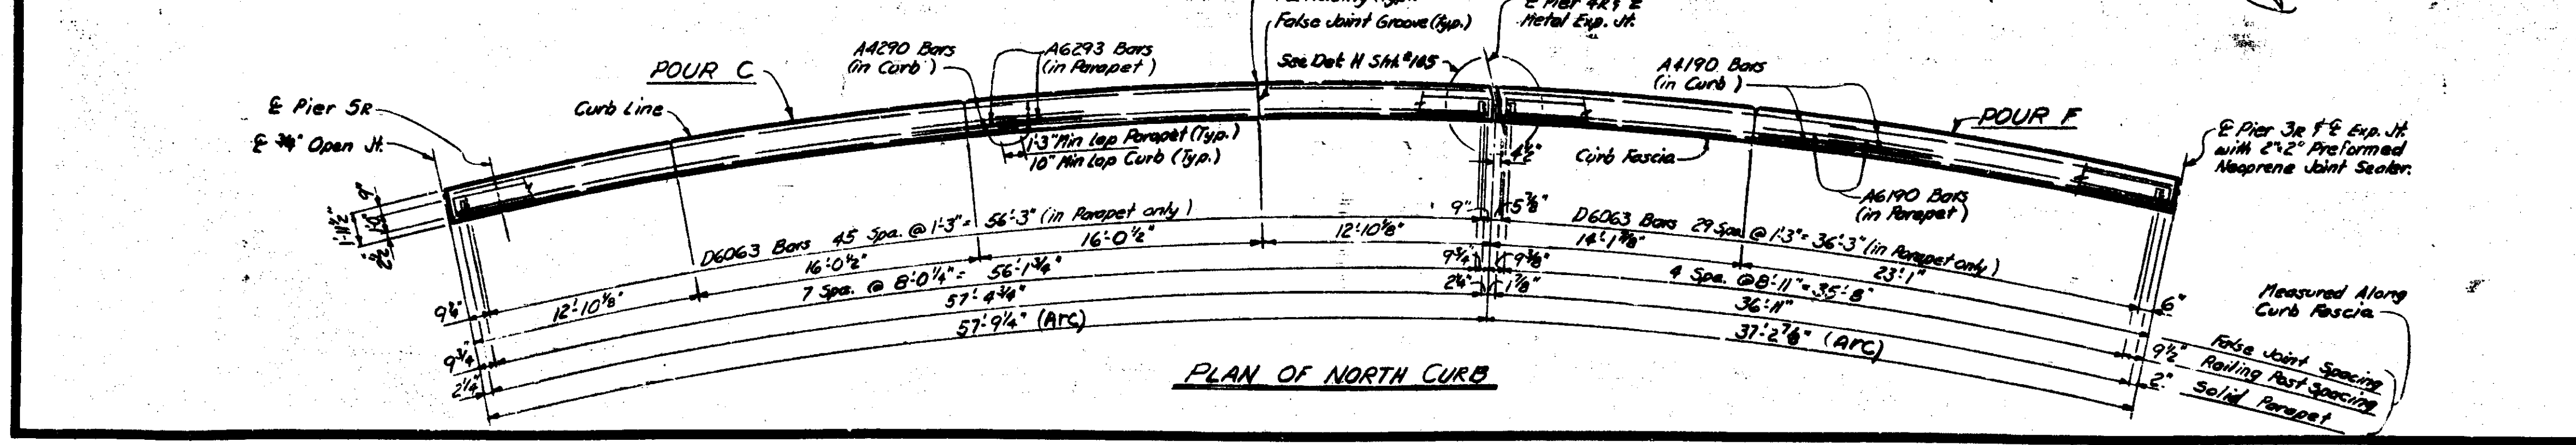 False Joint Groove (Typ.)
℄ Pier 4R & ℄
Metal Exp. Jt.
See Det H Sht. #105
A4290 Bars
(in Curb)
A6293 Bars
(in Parapet)
POUR C
A4190 Bars
(in Curb)
℄ Pier 5R
Curb Line
POUR F
℄ 3/4" Open Jt.
1'-3" Min Lap Parapet (Typ.)
10" Min Lap Curb (Typ.)
4½"
Curb Fascia
℄ Pier 3R & ℄ Exp. Jt.
with 2"x2" Preformed
Neoprene Joint Sealer.
A6190 Bars
(in Parapet)
1'-11¼"
9"
5⅞"
D6063 Bars 45 Spa. @ 1'-3" = 56'-3" (in Parapet only)
D6063 Bars 29 Spa @ 1'-3" = 36'-3" (in Parapet only)
12'-10⅛"
16'-0½"
16'-0½"
12'-10⅛"
23'-1"
7 Spa. @ 8'-0¼" = 56'-1¾"
9¾"
9⅜"
4 Spa. @ 8'-11" = 35'-8"
57'-4¾"
2¼"
1⅞"
36'-11"
57'-9¼" (Arc)
37'-2⅞" (Arc)
9¾"
2¼"
6"
9½"
2"
Measured Along
Curb Fascia
False Joint Spacing
Railing Post Spacing
Solid Parapet
PLAN OF NORTH CURB